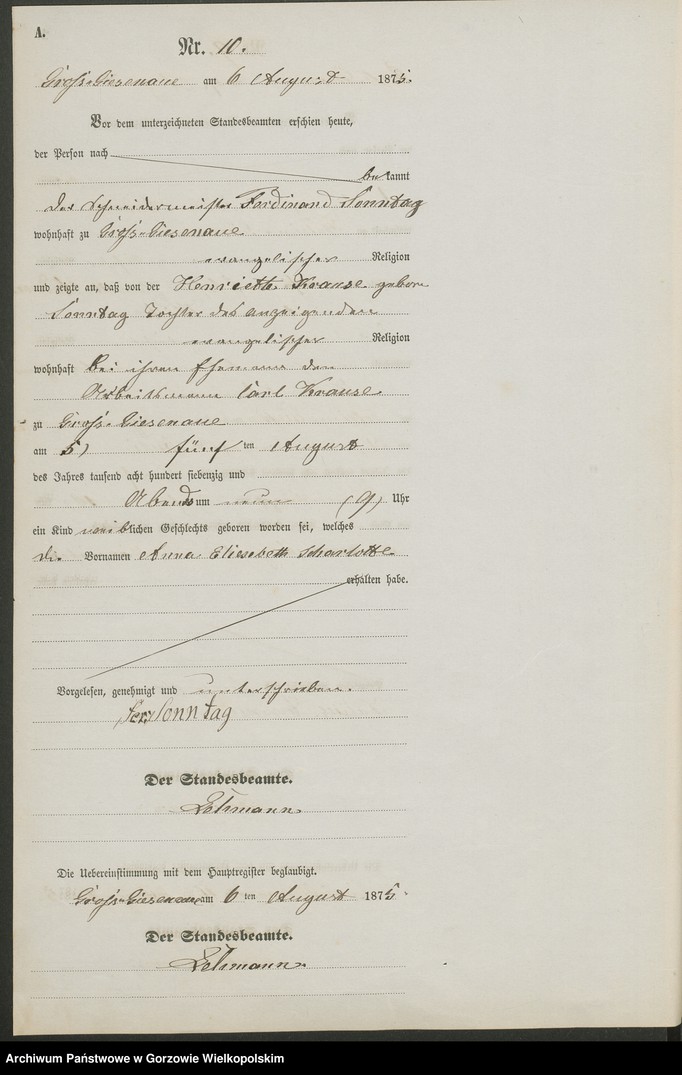 A.
Nr. 10.
Groß-Ciesenaue am 6 August 1875.
Vor dem unterzeichneten Standesbeamten erschien heute,
der Person nach
bekannt
der Schneidermeister Ferdinand Sonntag
wohnhaft zu Groß-Ciesenaue
evangelischer Religion
und zeigte an, daß von der Henriette Krause geborn
Sonntag Tochter des anzeigenden
evangelischer Religion
wohnhaft bei ihren Ehemann den
Arbeitsmann Carl Krause
zu Groß-Ciesenaue
am 5) fünf ten August
des Jahres tausend acht hundert siebenzig und
Abends um neun (9) Uhr
ein Kind weiblichen Geschlechts geboren worden sei, welches
die Vornamen Anna Eliesebeth Scharlotte
erhalten habe.
Vorgelesen, genehmigt und unterschrieben.
Sonntag
Der Standesbeamte.
Lehmann
Die Uebereinstimmung mit dem Hauptregister beglaubigt.
Groß-Ciesenaue am 6 ten August 1875
Der Standesbeamte.
Lehmann
Archiwum Państwowe w Gorzowie Wielkopolskim